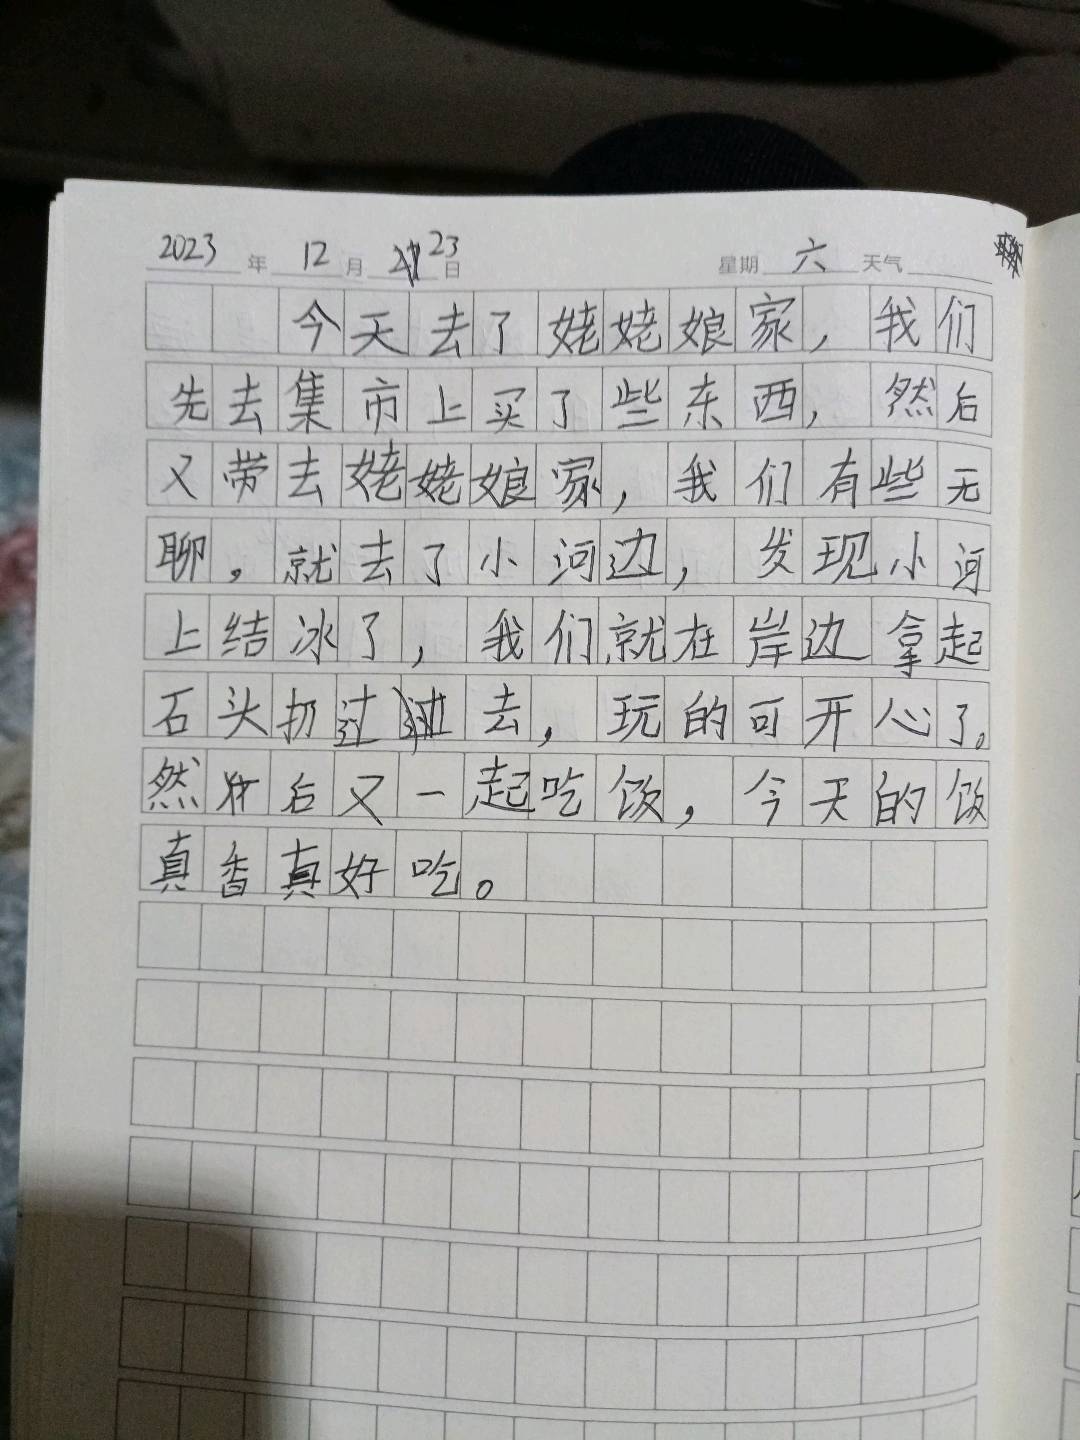 2023年12月23日 星期六 天气
今天去了姥姥娘家，我们
先去集市上买了些东西，然后
又带去姥姥娘家，我们有些无
聊，就去了小河边，发现小河
上结冰了，我们就在岸边拿起
石头扔过去，玩的可开心了。
然后又一起吃饭，今天的饭
真香真好吃。